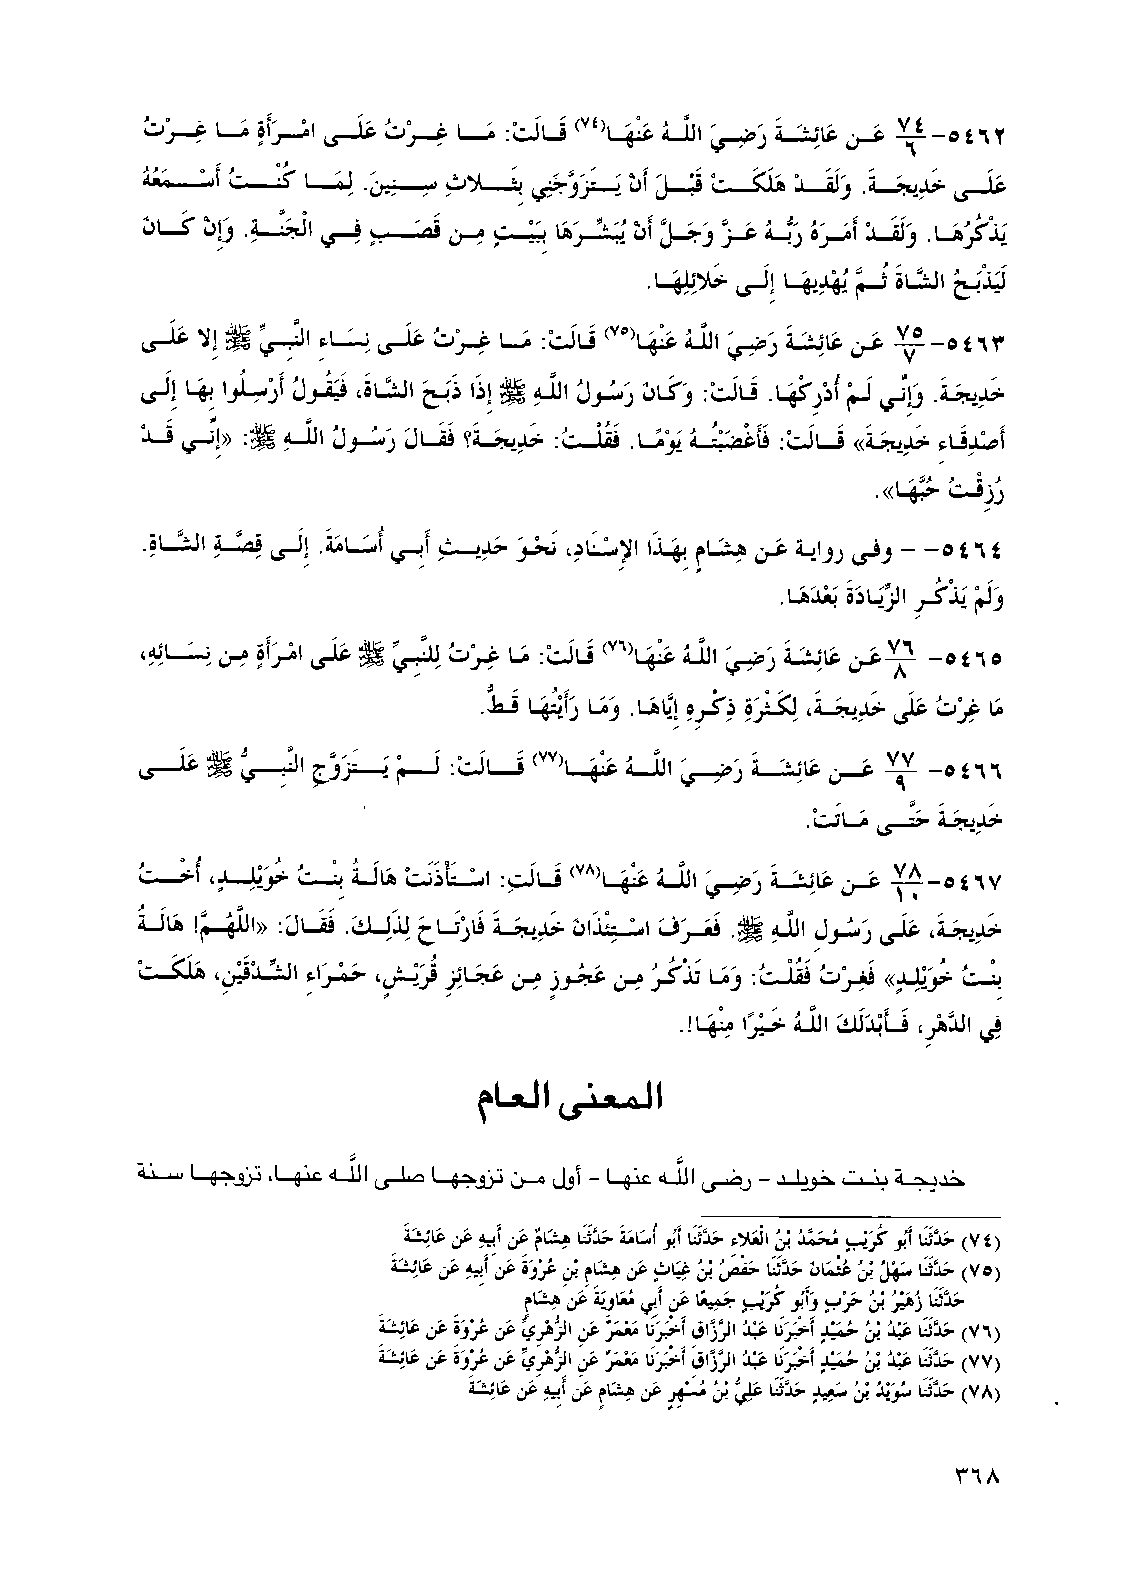 ٥٤٦٢- ٧٤/٦ عَـن عَائِشَـةَ رَضِـيَ اللَّـهُ عَنْهَـا(٧٤) قَـالَتْ: مَـا غِـرْتُ عَلَـى امْـرَأَةٍ مَـا غِـرْتُ
عَلَـى خَدِيجَـةَ. وَلَقَـدْ هَلَكَـتْ قَبْـلَ أَنْ يَـتَزَوَّجَنِي بِثَـلاثِ سِـنِينَ. لِمَـا كُنْـتُ أَسْـمَعُهُ
يَذْكُرُهَـا. وَلَقَـدْ أَمَـرَهُ رَبُّـهُ عَـزَّ وَجَـلَّ أَنْ يُبَشِّـرَهَا بِبَيْـتٍ مِـن قَصَـبٍ فِـي الْجَنَّـةِ. وَإِنْ كَـانَ
لَيَذْبَـحُ الشَّـاةَ ثُـمَّ يُهْدِيهَـا إِلَـى خَلائِلِهَـا.
٥٤٦٣- ٧٥/٧ عَـن عَائِشَـةَ رَضِـيَ اللَّـهُ عَنْهَـا(٧٥) قَـالَتْ: مَـا غِـرْتُ عَلَـى نِسَـاءِ النَّبِـيِّ ﷺ إِلا عَلَـى
خَدِيجَـةَ. وَإِنِّـي لَـمْ أُدْرِكْهَـا. قَـالَتْ: وَكَـانَ رَسُـولُ اللَّـهِ ﷺ إِذَا ذَبَـحَ الشَّـاةَ، فَيَقُـولُ أَرْسِـلُوا بِهَـا إِلَـى
أَصْدِقَـاءِ خَدِيجَـةَ» قَـالَتْ: فَأَغْضَبْتُـهُ يَوْمًـا. فَقُلْـتُ: خَدِيجَـةَ؟ فَقَـالَ رَسُـولُ اللَّـهِ ﷺ: «إِنِّـي قَـدْ
رُزِقْـتُ حُبَّهَـا».
٥٤٦٤- - وفى روايـة عَـن هِشَـامٍ بِهَـذَا الإِسْـنَادِ، نَحْـوَ حَدِيـثِ أَبِـي أُسَـامَةَ. إِلَـى قِصَّـةِ الشَّـاةِ.
وَلَمْ يَذْكُـرِ الزِّيَـادَةَ بَعْدَهَـا.
٥٤٦٥- ٧٦/٨ عَـن عَائِشَـةَ رَضِـيَ اللَّـهُ عَنْهَـا(٧٦) قَـالَتْ: مَـا غِـرْتُ لِلنَّبِـيِّ ﷺ عَلَـى امْـرَأَةٍ مِـن نِسَـائِهِ،
مَا غِـرْتُ عَلَى خَدِيجَـةَ، لِكَـثْرَةِ ذِكْـرِهِ إِيَّاهَـا. وَمَـا رَأَيْتُهَـا قَـطُّ.
٥٤٦٦- ٧٧/٩ عَـن عَائِشَـةَ رَضِـيَ اللَّـهُ عَنْهَـا(٧٧) قَـالَتْ: لَـمْ يَـتَزَوَّجِ النَّبِـيُّ ﷺ عَلَـى
خَدِيجَـةَ حَتَّـى مَـاتَتْ.
٥٤٦٧- ٧٨/١٠ عَـن عَائِشَـةَ رَضِـيَ اللَّـهُ عَنْهَـا(٧٨) قَـالَتِ: اسْـتَأْذَنَتْ هَالَـةُ بِنْـتُ خُوَيْلِـدٍ، أُخْـتُ
خَدِيجَـةَ، عَلَى رَسُـولِ اللَّهِ ﷺ. فَعَـرَفَ اسْـتِئْذَانَ خَدِيجَـةَ فَارْتَـاحَ لِذَلِـكَ. فَقَـالَ: «اللَّهُـمَّ! هَالَـةُ
بِنْـتُ خُوَيْلِـدٍ» فَغِـرْتُ فَقُلْـتُ: وَمَـا تَذْكُـرُ مِـن عَجُـوزٍ مِـن عَجَـائِزِ قُرَيْـشٍ، حَمْـرَاءِ الشِّـدْقَيْنِ، هَلَكَـتْ
فِي الدَّهْـرِ، فَـأَبْدَلَكَ اللَّـهُ خَـيْرًا مِنْهَـا!.
المعنى العام
خديجـة بنـت خويلـد - رضـى اللَّـه عنهـا - أول مـن تزوجهـا صلـى اللَّـه عنهـا، تزوجهـا سـنة
(٧٤) حَدَّثَنَا أَبُو كُرَيْبٍ مُحَمَّدُ بْنُ الْعَلاءِ حَدَّثَنَا أَبُو أُسَامَةَ حَدَّثَنَا هِشَامٌ عَن أَبِيهِ عَن عَائِشَةَ
(٧٥) حَدَّثَنَا سَهْلُ بْنُ عُثْمَانَ حَدَّثَنَا حَفْصُ بْنُ غِيَاثٍ عَن هِشَامِ بْنِ عُرْوَةَ عَن أَبِيهِ عَن عَائِشَةَ
حَدَّثَنَا زُهَيْرُ بْنُ حَرْبٍ وَأَبُو كُرَيْبٍ جَمِيعًا عَن أَبِي مُعَاوِيَةَ عَن هِشَامٍ
(٧٦) حَدَّثَنَا عَبْدُ بْنُ حُمَيْدٍ أَخْبَرَنَا عَبْدُ الرَّزَّاقِ أَخْبَرَنَا مَعْمَرٌ عَنِ الزُّهْرِيِّ عَن عُرْوَةَ عَن عَائِشَةَ
(٧٧) حَدَّثَنَا عَبْدُ بْنُ حُمَيْدٍ أَخْبَرَنَا عَبْدُ الرَّزَّاقِ أَخْبَرَنَا مَعْمَرٌ عَنِ الزُّهْرِيِّ عَن عُرْوَةَ عَن عَائِشَةَ
(٧٨) حَدَّثَنَا سُوَيْدُ بْنُ سَعِيدٍ حَدَّثَنَا عَلِيُّ بْنُ مُسْهِرٍ عَن هِشَامٍ عَن أَبِيهِ عَن عَائِشَةَ
٣٦٨